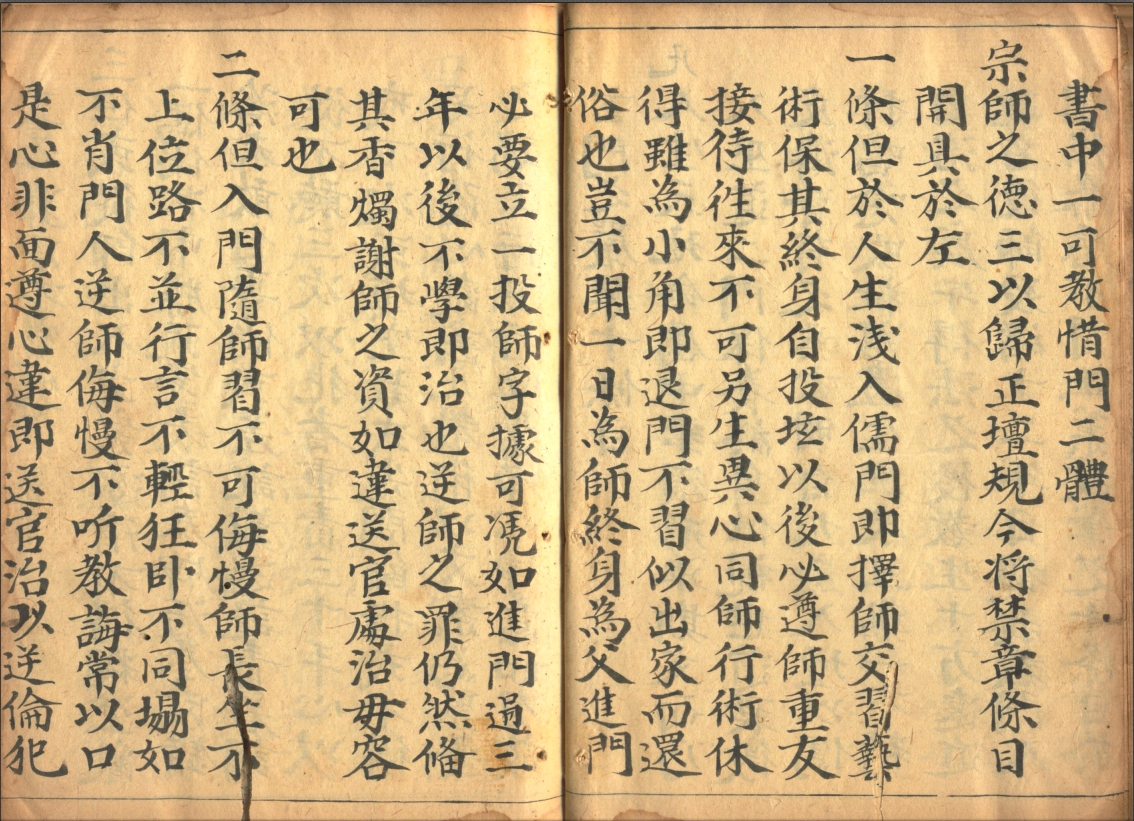 書中一可教惜門二體
宗師之德三以歸正壇規今将禁章條目
開具於左
一條但於人生浅入儒門即擇師交習藝
術保其終身自投坛以後必遵師重友
接待往來不可另生異心同師行術休
得雖為小角即退門不習似出家而還
俗也豈不聞一日為師終身為父進門
必要立一投師字據可凴如進門過三
年以後不學即治也逆師之罪仍然俻
其香燭謝師之資如違送官處治毋容
可也
二條但入門隨師習不可侮慢師長坐不
上位路不並行言不輕狂卧不同塌如
不肖門人逆師侮慢不听教誨常以口
是心非面遵心違即送官治以逆倫犯